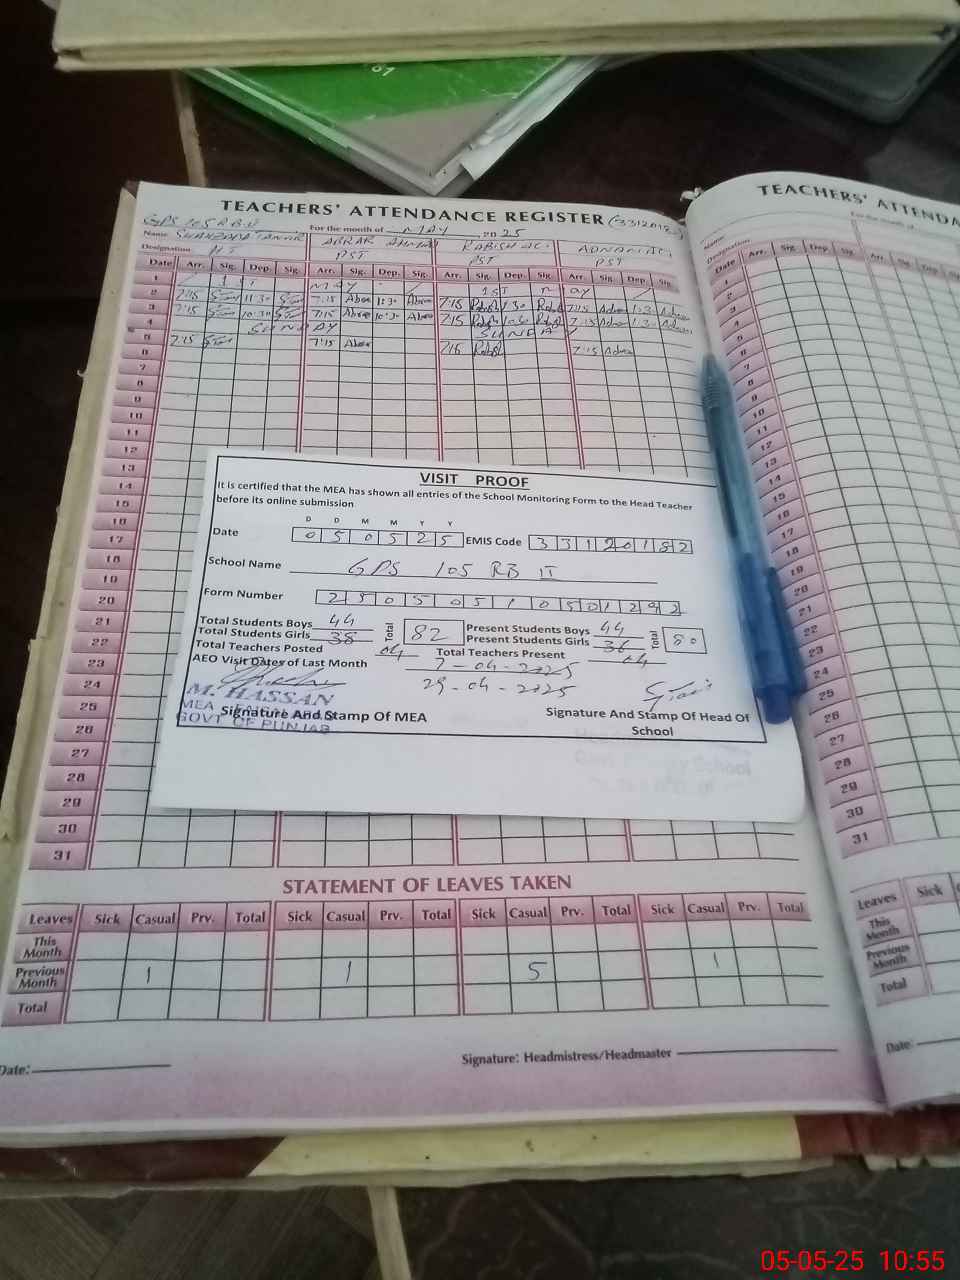 TEACHERS' ATTENDANCE REGISTER (33120182)
GPS 105 R.B II For the month of MAY 2025
Name
Designation H.T PST PST PST
Date Arr. Sig. Dep. Sig. Arr. Sig. Dep. Sig. Arr. Sig. Dep. Sig. Arr. Sig. Dep. Sig.
1 1 ST MAY 1ST MAY
2 7:15 11:30 7:15 7:15 7:15
3 7:15 10:30 7:15 10:30 7:15 7:15
4 SUNDAY SUNDAY
5 7:15 7:15 7:15 7:15
6
7
8
9
10
11
12
13
14
15
16
17
18
19
20
21
22
23
24
25
26
27
28
29
30
31
VISIT PROOF
It is certified that the MEA has shown all entries of the School Monitoring Form to the Head Teacher
before its online submission
D D M M Y Y
Date 0 5 0 5 2 5 EMIS Code 3 3 1 2 0 1 8 2
School Name GPS 105 RB II
Form Number 2 5 0 5 0 5 1 0 5 0 1 2 9 2
Total Students Boys 44 Total 82 Present Students Boys 44 Total 80
Total Students Girls 38 Present Students Girls 36
Total Teachers Posted 04 Total Teachers Present 04
AEO Visit Dates of Last Month 7-04-2025
29-04-2025
M. HASSAN
MEA
GOVT OF PUNJAB
Signature And Stamp Of MEA Signature And Stamp Of Head Of
School
STATEMENT OF LEAVES TAKEN
Leaves Sick Casual Prv. Total Sick Casual Prv. Total Sick Casual Prv. Total Sick Casual Prv. Total
This Month
Previous Month 1 1 5 1
Total
Date: Signature: Headmistress/Headmaster
TEACHERS' ATTENDA
Name
Designation
Date Arr. Sig. Dep. Sig. Arr. Sig. Dep. Sig.
1
2
3
4
5
6
7
8
9
10
11
12
13
14
15
16
17
18
19
20
21
22
23
24
25
26
27
28
29
30
31
Leaves Sick
This Month
Previous Month
Total
Date:
05-05-25 10:55